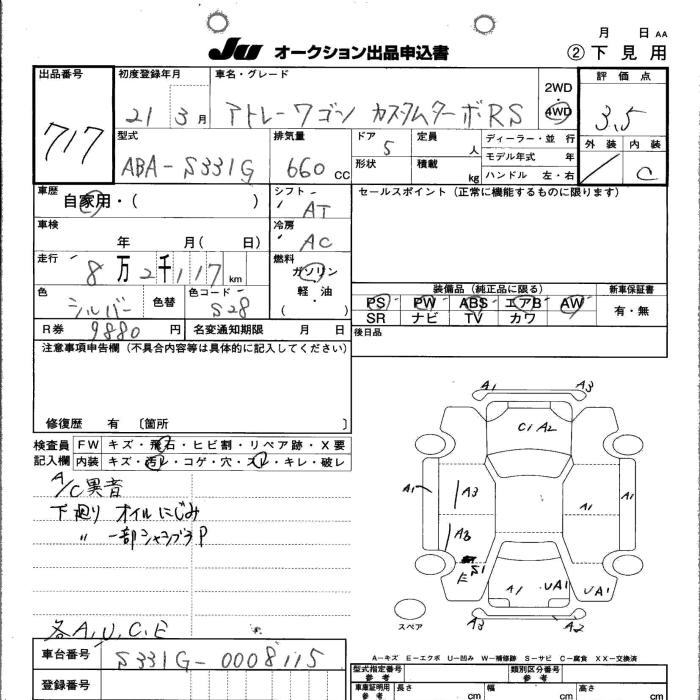 月 日 AA
JU オークション出品申込書 ② 下見用
出品番号 初度登録年月 車名・グレード 2WD 評価点
717 21 3月 アトレーワゴン カスタムターボRS 4WD 3.5
型式 排気量 ドア 定員 ディーラー・並行 外装 内装
ABA-S331G 660 CC 5 人 モデル年式 年 C
形状 積載 kg ハンドル 左・右
車歴 シフト セールスポイント(正常に機能するものに限ります)
自家用・( ) AT
車検 冷房
年 月( 日) AC
走行 燃料
8万2千117 km ガソリン
軽・油
( )
色 シルバー 色替 色コード S28
装備品(純正品に限る) 新車保証書
PS PW ABS エアB AW 有・無
SR ナビ TV カワ
R券 9880 円 名変通知期限 月 日 後日品
注意事項申告欄(不具合内容等は具体的に記入してください)
修復歴 有 〔箇所 〕
検査員 FW キズ・飛石・ヒビ割・リペア跡・X要
記入欄 内装 キズ・汚レ・コゲ・穴・スレ・キレ・破レ
A/C異音
下廻り オイルにじみ
〃 一部シャシブラP
各A,U,C,E
A1 A3
C1 A2
A1 A3 A1 A1
A3
S1
E A1 UA1 UA1
スペア A3 A2
A−キズ E−エクボ U−凹み W−補修跡 S−サビ C−腐食 XX−交換済
車台番号 S331G-0008115
型式指定番号 参考 類別区分番号 参考
登録番号
車庫証明用 参考 長さ cm 幅 cm 高さ cm